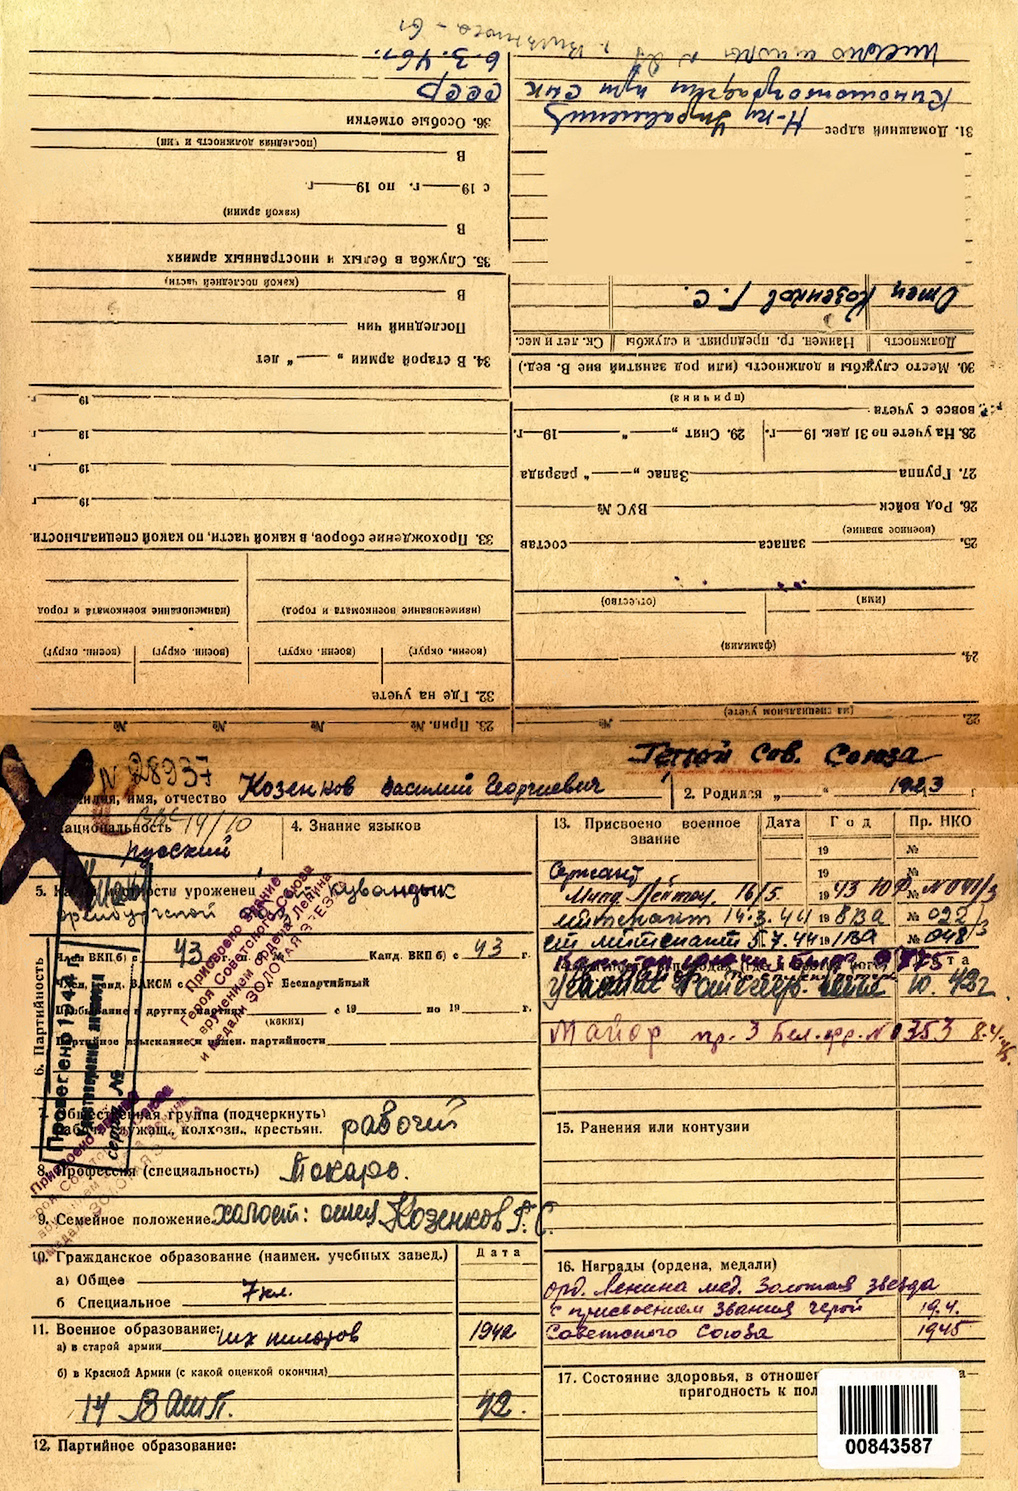 Герой Сов. Союза
№ 28937
имя, отчество Козенков Василий Георгиевич
2. Родился „ “ 1923 г.
национальность
русский
4. Знание языков
13. Присвоено военное звание
Дата
Год
Пр. НКО
19 №
19 №
Сержант
Млад. Лейтен. 16/5. 1943
лейтенант 14.3.44 19 8ВА № 022/3
ст лейтенант 5.7.44 19 1ВА № 048/3
Майор пр. 3 Бел. фр. № 0353
5. уроженец
Кувандык
6. Партийность
Член ВКП(б) с 43
Канд. ВКП(б) с 43 г.
Беспартийный
с 19 по 19 г.
(каких)
партийности
Присвоено звание
Героя Советского Союза
с вручением ордена Ленина
и медали ЗОЛОТАЯ ЗВЕЗДА
Проверено 1944 г.
серия №
Общественная группа (подчеркнуть)
служащ., колхозн., крестьян. рабочий
8. Профессия (специальность) Токарь.
9. Семейное положение холост: отец Козенков Г. С.
10. Гражданское образование (наимен. учебных завед.)
Дата
а) Общее
7 кл.
б Специальное
11. Военное образование: шк пилотов 1942
а) в старой армии
б) в Красной Армии (с какой оценкой окончил)
14 ВАШП. 42.
12. Партийное образование:
15. Ранения или контузии
16. Награды (ордена, медали)
орд. Ленина мед. Золотая звезда
с присвоением звания герой 19.4.
Советского Союза 1945
17. Состояние здоровья, в
пригодность к
00843587
22. (на специальном учете) №
23. Прип. № № № №
24. (фамилия)
(имя) (отчество)
25. запаса состав
(военное звание)
26. Род войск ВУС №
27. Группа Запас „ “ разряда
28. На учете по 31 дек. 19 г.
29. Снят „ “ 19 г.
вовсе с учета
(причина)
30. Место службы и должность (или род занятий вне В. вед.)
Должность
Наимен. гр. предприят. и службы
Ск. лет и мес.
Отец Козенков Г. С.
31. Домашний адрес Н-ку Управления
Кинематографии при СНК
СССР
6.3.46 г.
32. Где на учете
(воен. округ) (воен. округ) (воен. округ) (воен. округ)
(наименование военкомата и город) (наименование военкомата и город)
33. Прохождение сборов, в какой части, по какой специальности.
19 г.
19 г.
19 г.
19 г.
34. В старой армии „ “ лет
Последний чин
В
(какой последней части)
35. Служба в белых и иностранных армиях
В
(какой армии)
с 19 г. по 19 г.
В
(последняя должность и чин)
36. Особые отметки